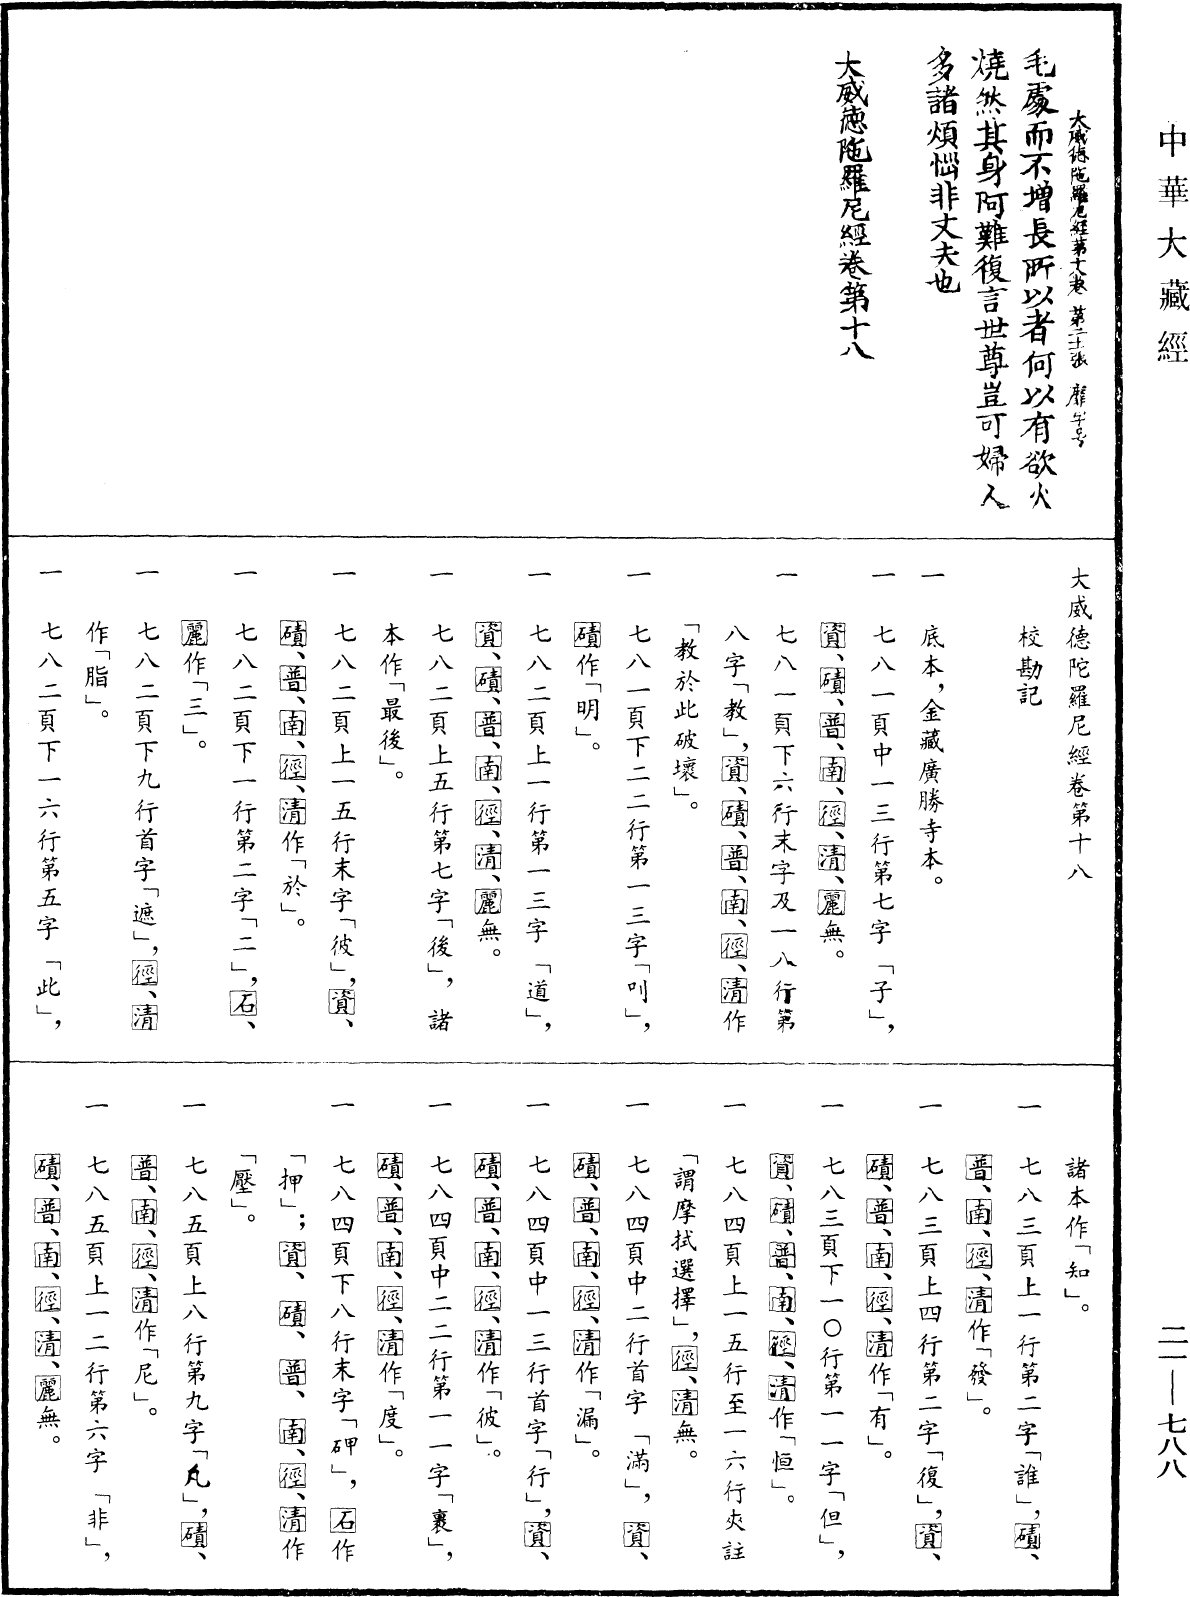 中華大藏經
大威德陁羅尼經第十八卷 第二十張 靡字号
毛處而不增長所以者何以有欲火
燒然其身阿難復言世尊豈可婦人
多諸煩惱非丈夫也
大威德陁羅尼經卷第十八
大威德陀羅尼經卷第十八
校勘記
一 底本,金藏廣勝寺本。
一 七八一頁中一三行第七字「子」,
資、磧、普、南、徑、清、麗無。
一 七八一頁下六行末字及一八行第
八字「教」,資、磧、普、南、徑、清作
「教於此破壞」。
一 七八一頁下二二行第一三字「叫」,
磧作「明」。
一 七八二頁上一行第一三字「道」,
資、磧、普、南、徑、清、麗無。
一 七八二頁上五行第七字「後」,諸
本作「最後」。
一 七八二頁上一五行末字「彼」,資、
磧、普、南、徑、清作「於」。
一 七八二頁下一行第二字「二」,石、
麗作「三」。
一 七八二頁下九行首字「遮」,徑、清
作「脂」。
一 七八二頁下一六行第五字「此」,
諸本作「知」。
一 七八三頁上一行第二字「誰」,磧、
普、南、徑、清作「發」。
一 七八三頁上四行第二字「復」,資、
磧、普、南、徑、清作「有」。
一 七八三頁下一〇行第一一字「但」,
資、磧、普、南、徑、清作「恒」。
一 七八四頁上一五行至一六行夾註
「謂摩拭選擇」,徑、清無。
一 七八四頁中二行首字「滿」,資、
磧、普、南、徑、清作「漏」。
一 七八四頁中一三行首字「行」,資、
磧、普、南、徑、清作「彼」。
一 七八四頁中二二行第一一字「裹」,
磧、普、南、徑、清作「度」。
一 七八四頁下八行末字「砷」,石作
「押」;資、磧、普、南、徑、清作
「壓」。
一 七八五頁上八行第九字「凡」,磧、
普、南、徑、清作「尼」。
一 七八五頁上一二行第六字「非」,
磧、普、南、徑、清、麗無。
二一—七八八